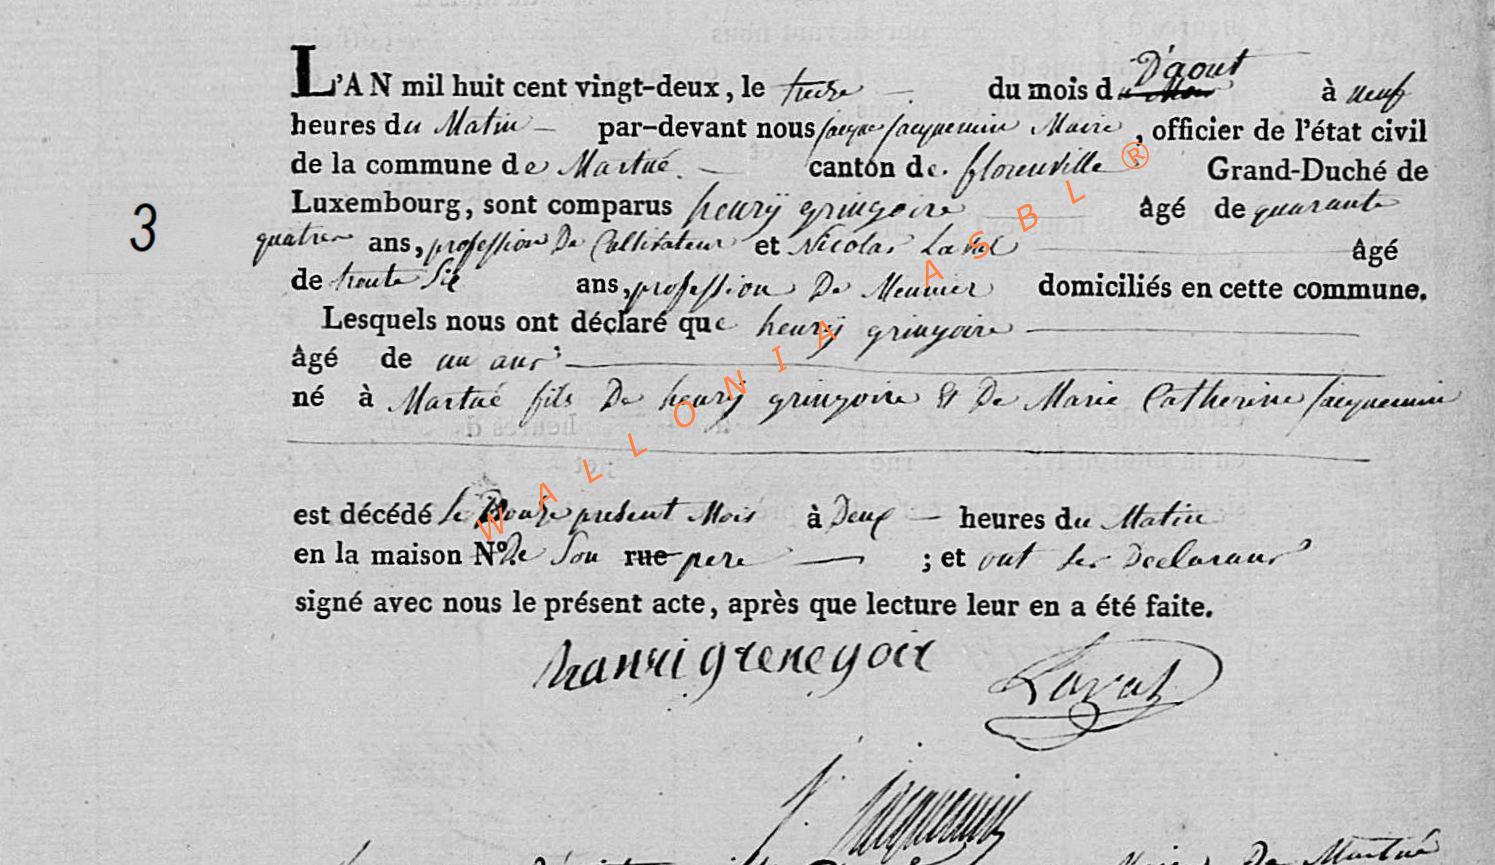 L'AN mil huit cent vingt-deux, le treize du mois d'aout à neuf
heures du Matin par-devant nous jacque jacquemin Maire, officier de l'état civil
de la commune de Martué canton de florenville Grand-Duché de
3
Luxembourg, sont comparus henrÿ gringoire âgé de quarante
quatre ans, profession De Cultivateur et Nicolas Laval âgé
de trente Six ans, profession De Meunier domiciliés en cette commune.
Lesquels nous ont déclaré que henrÿ gringoire
âgé de un ans
né à Martué fils De henrÿ gringoire & De Marie Catherine jacquemin
est décédé le Douze present Mois à Deux heures du Matin
en la maison No De Son rue pere ; et ont les Declarans
signé avec nous le présent acte, après que lecture leur en a été faite.
hanri grenegoir Laval
J. jacquemin
De Martué
WALLONIA ASBL ®